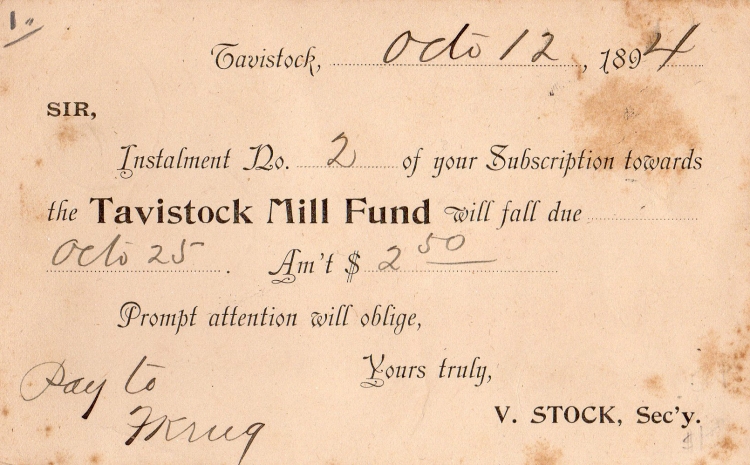 1.
Tavistock, Octo 12, 1894
SIR,
Instalment No. 2 of your Subscription towards
the Tavistock Mill Fund will fall due
Octo 25. Am't $ 2 50
Prompt attention will oblige,
Yours truly,
Pay to
V. STOCK, Sec'y.
F Krug